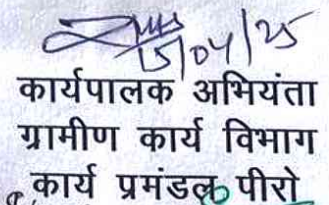 15/04/25
कार्यपालक अभियंता
ग्रामीण कार्य विभाग
कार्य प्रमंडल पीरो